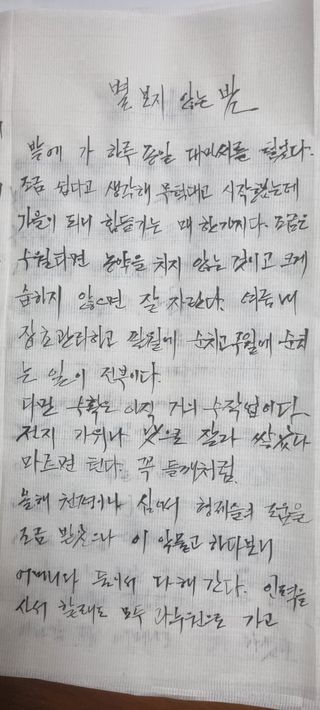 별 보지 않는 밤
밭에 가 하루 종일 대마씨를 털었다.
조금 쉽다고 생각해 무턱대고 시작했는데
가을이 되니 힘들기는 매 한가지다. 조금은
수월타면 농약을 치지 않는 것이고 크게
습하지 않으면 잘 자란다. 여름내
잡초관리하고 팔월에 순치고 구월에 순치
는 일이 전부이다.
다만 수확도 아직 거의 수작업이다.
전지 가위나 낫으로 잘라 쌓았다
마르면 턴다. 꼭 들깨처럼.
올해 천평이나 심어서 형제들의 도움을
조금 받았으나 이 악물고 하다보니
어머니와 둘이서 다 해 간다. 인력을
사서 할래도 모두 과수원으로 가고